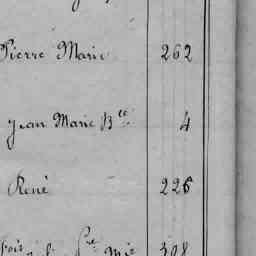 Pierre Marie 262
Jean Marie Bte 4
René 226
308